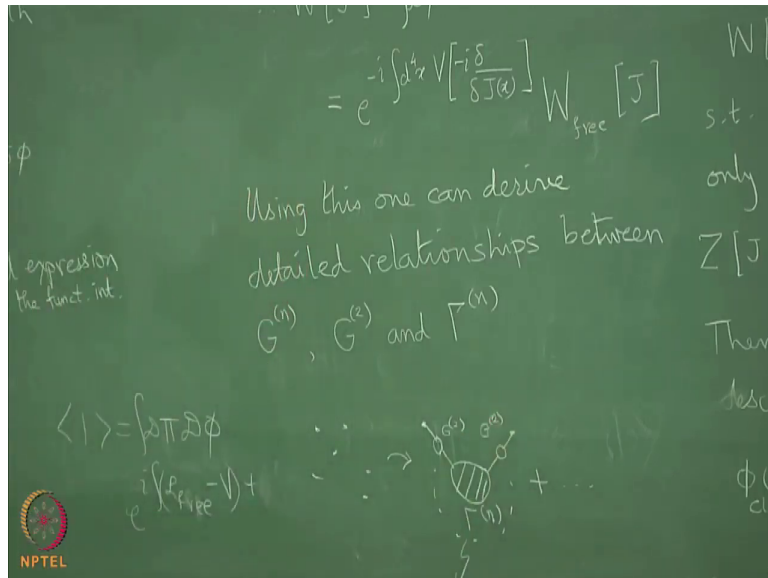 W[J]
= e^{-i∫d⁴x V[-iδ/δJ(x)]} W_free [J]
Using this one can derive
detailed relationships between
G^(n), G^(2) and Γ^(n)
expression
the funct. int.
⟨1⟩ = ∫𝒟π𝒟φ
e^{i∫(ℒ_free - V) +
G^(2) G^(2)
Γ^(n)
+ ....
W[
s.t.
only
Z[J
Then
φ
cl
NPTEL